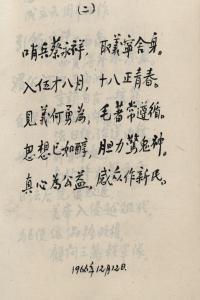 (二)
哨兵蔡永祥，取義寧舍身。
入伍才八月，十八正青春。
見義何勇為，毛著常遵循。
思想正如醇，胆力驚鬼神。
真心為公益，感众作新民。
1966年12月12日。